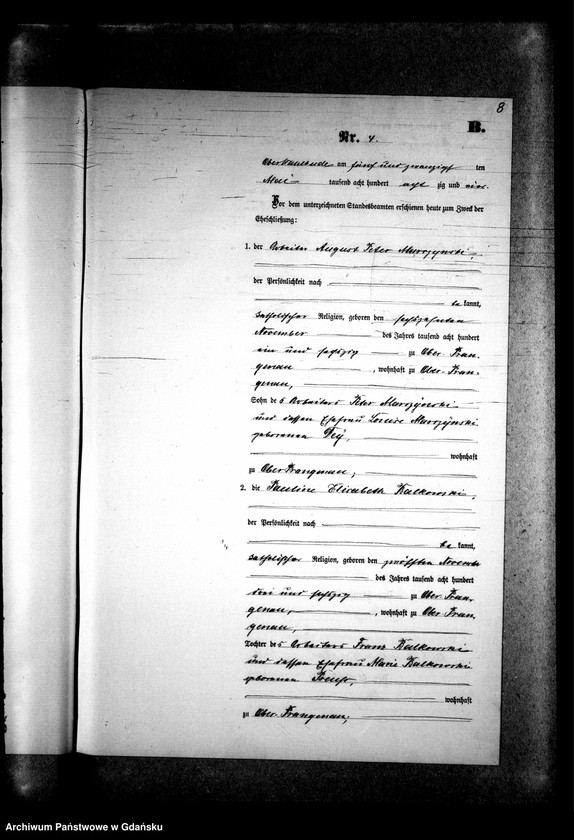 8
B.
Nr. 4.
am fünf und zwanzigsten
Mai tausend acht hundert acht zig und vier.
Vor dem unterzeichneten Standesbeamten erschienen heute zum Zweck der
Eheschließung:
1. der Arbeiter August Peter Murszynski,
der Persönlichkeit nach
be kannt,
katholischer Religion, geboren den sechszehnten
November des Jahres tausend acht hundert
ein und sechszig zu Ober-Pran-
genau, wohnhaft zu Ober-Pran-
genau,
Sohn des Arbeiters Peter Murszynski
und dessen Ehefrau Louise Murszynski
geborenen
wohnhaft
zu Ober Prangenau;
2. die Pauline Elisabeth Kalkowski,
der Persönlichkeit nach
be kannt,
katholischer Religion, geboren den zwölften November
des Jahres tausend acht hundert
drei und sechszig zu Ober-Pran-
genau, wohnhaft zu Ober-Pran-
genau,
Tochter des Arbeiters Franz Kalkowski
und dessen Ehefrau Marie Kalkowski
geborenen
wohnhaft
zu Ober-Prangenau;
Archiwum Państwowe w Gdańsku